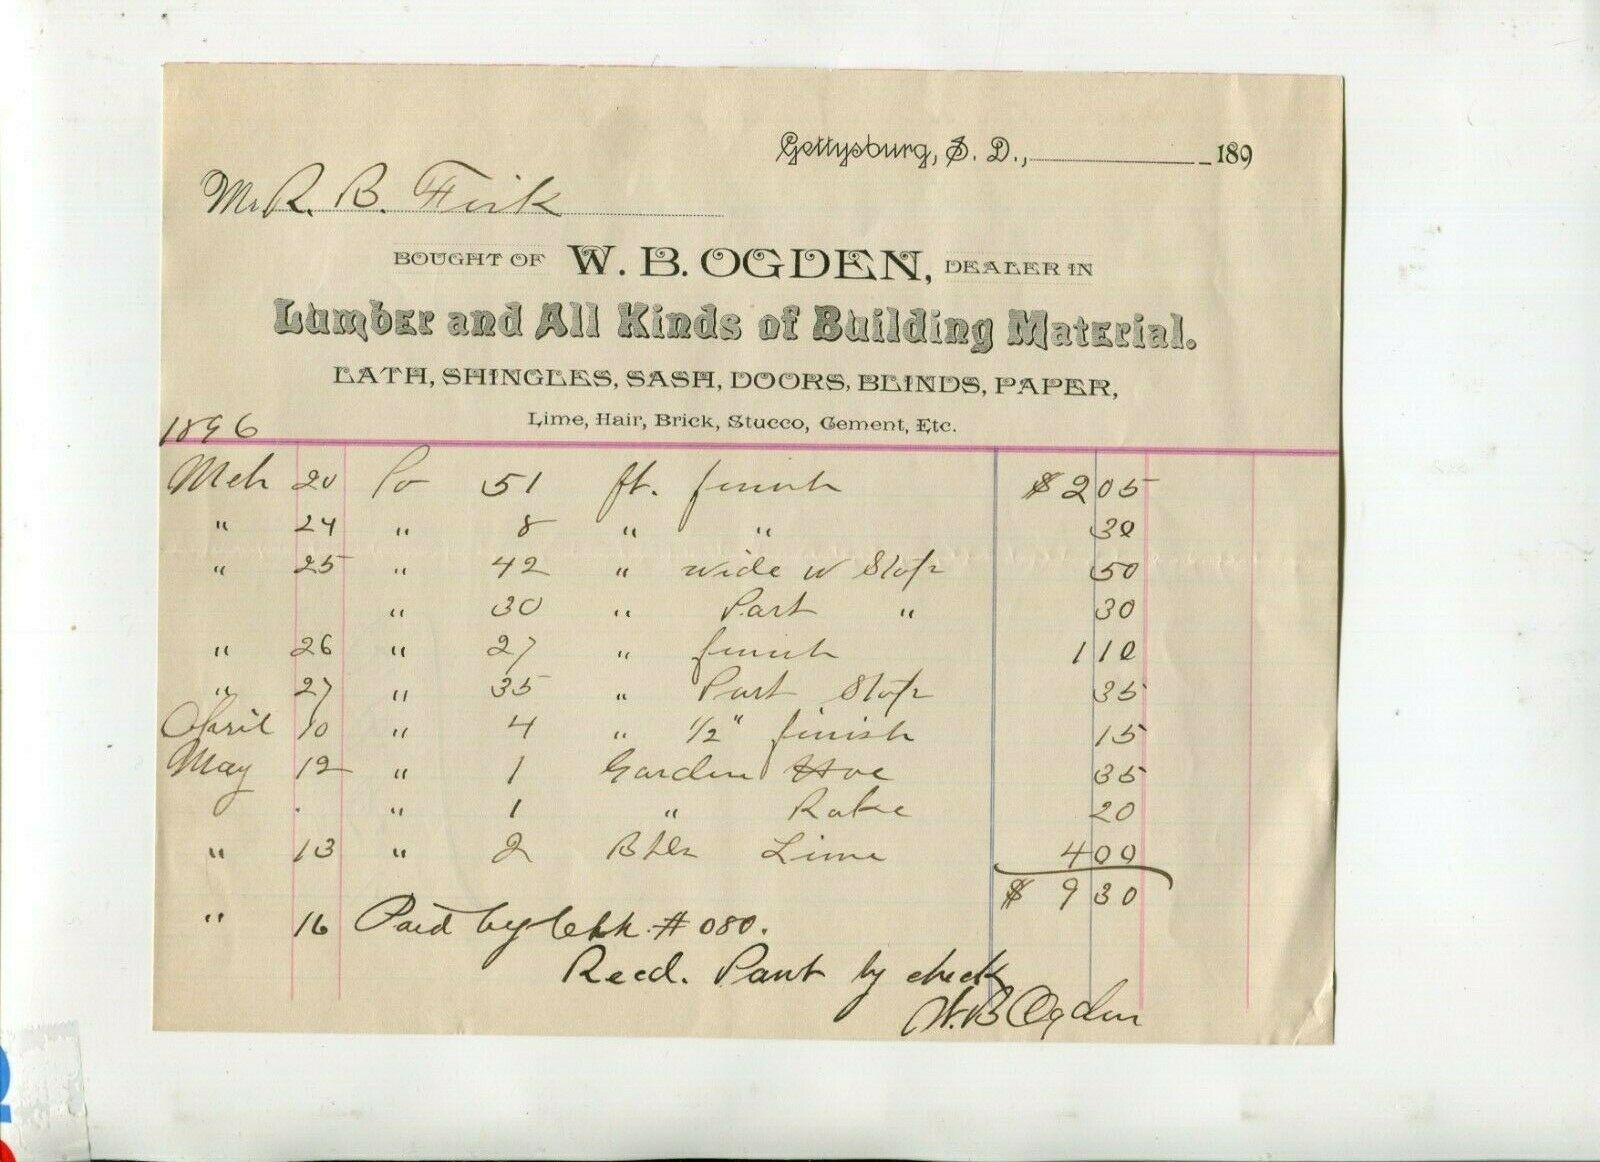 Gettysburg, S. D., 189
Mr R. B. Fisk
BOUGHT OF W. B. OGDEN, DEALER IN
Lumber and All Kinds of Building Material.
LATH, SHINGLES, SASH, DOORS, BLINDS, PAPER,
Lime, Hair, Brick, Stucco, Cement, Etc.
1896
Mch 20 To 51 ft. finish $2 05
" 24 " 8 " " 30
" 25 " 42 " wide W Stop 50
" 30 " Part " 30
" 26 " 27 " finish 1 10
" 27 " 35 " Part Stop 35
April 10 " 4 " 1/2" finish 15
May 12 " 1 Garden Hoe 35
" 1 " Rake 20
" 13 " 2 Bbls Lime 4 00
$ 9 30
" 16 Paid by Chk. # 080.
Recd. Paymt by check
W. B Ogden